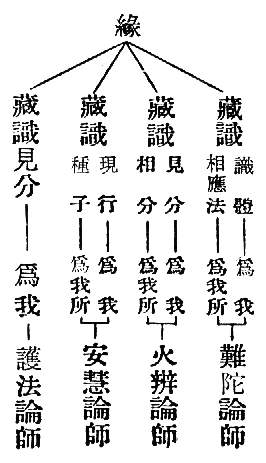 緣
藏識
識體
爲我
相應法
爲我所
難陀論師
藏識
見分
爲我
相分
爲我所
火辨論師
藏識
現行
爲我
種子
爲我所
安慧論師
藏識見分
爲我
護法論師